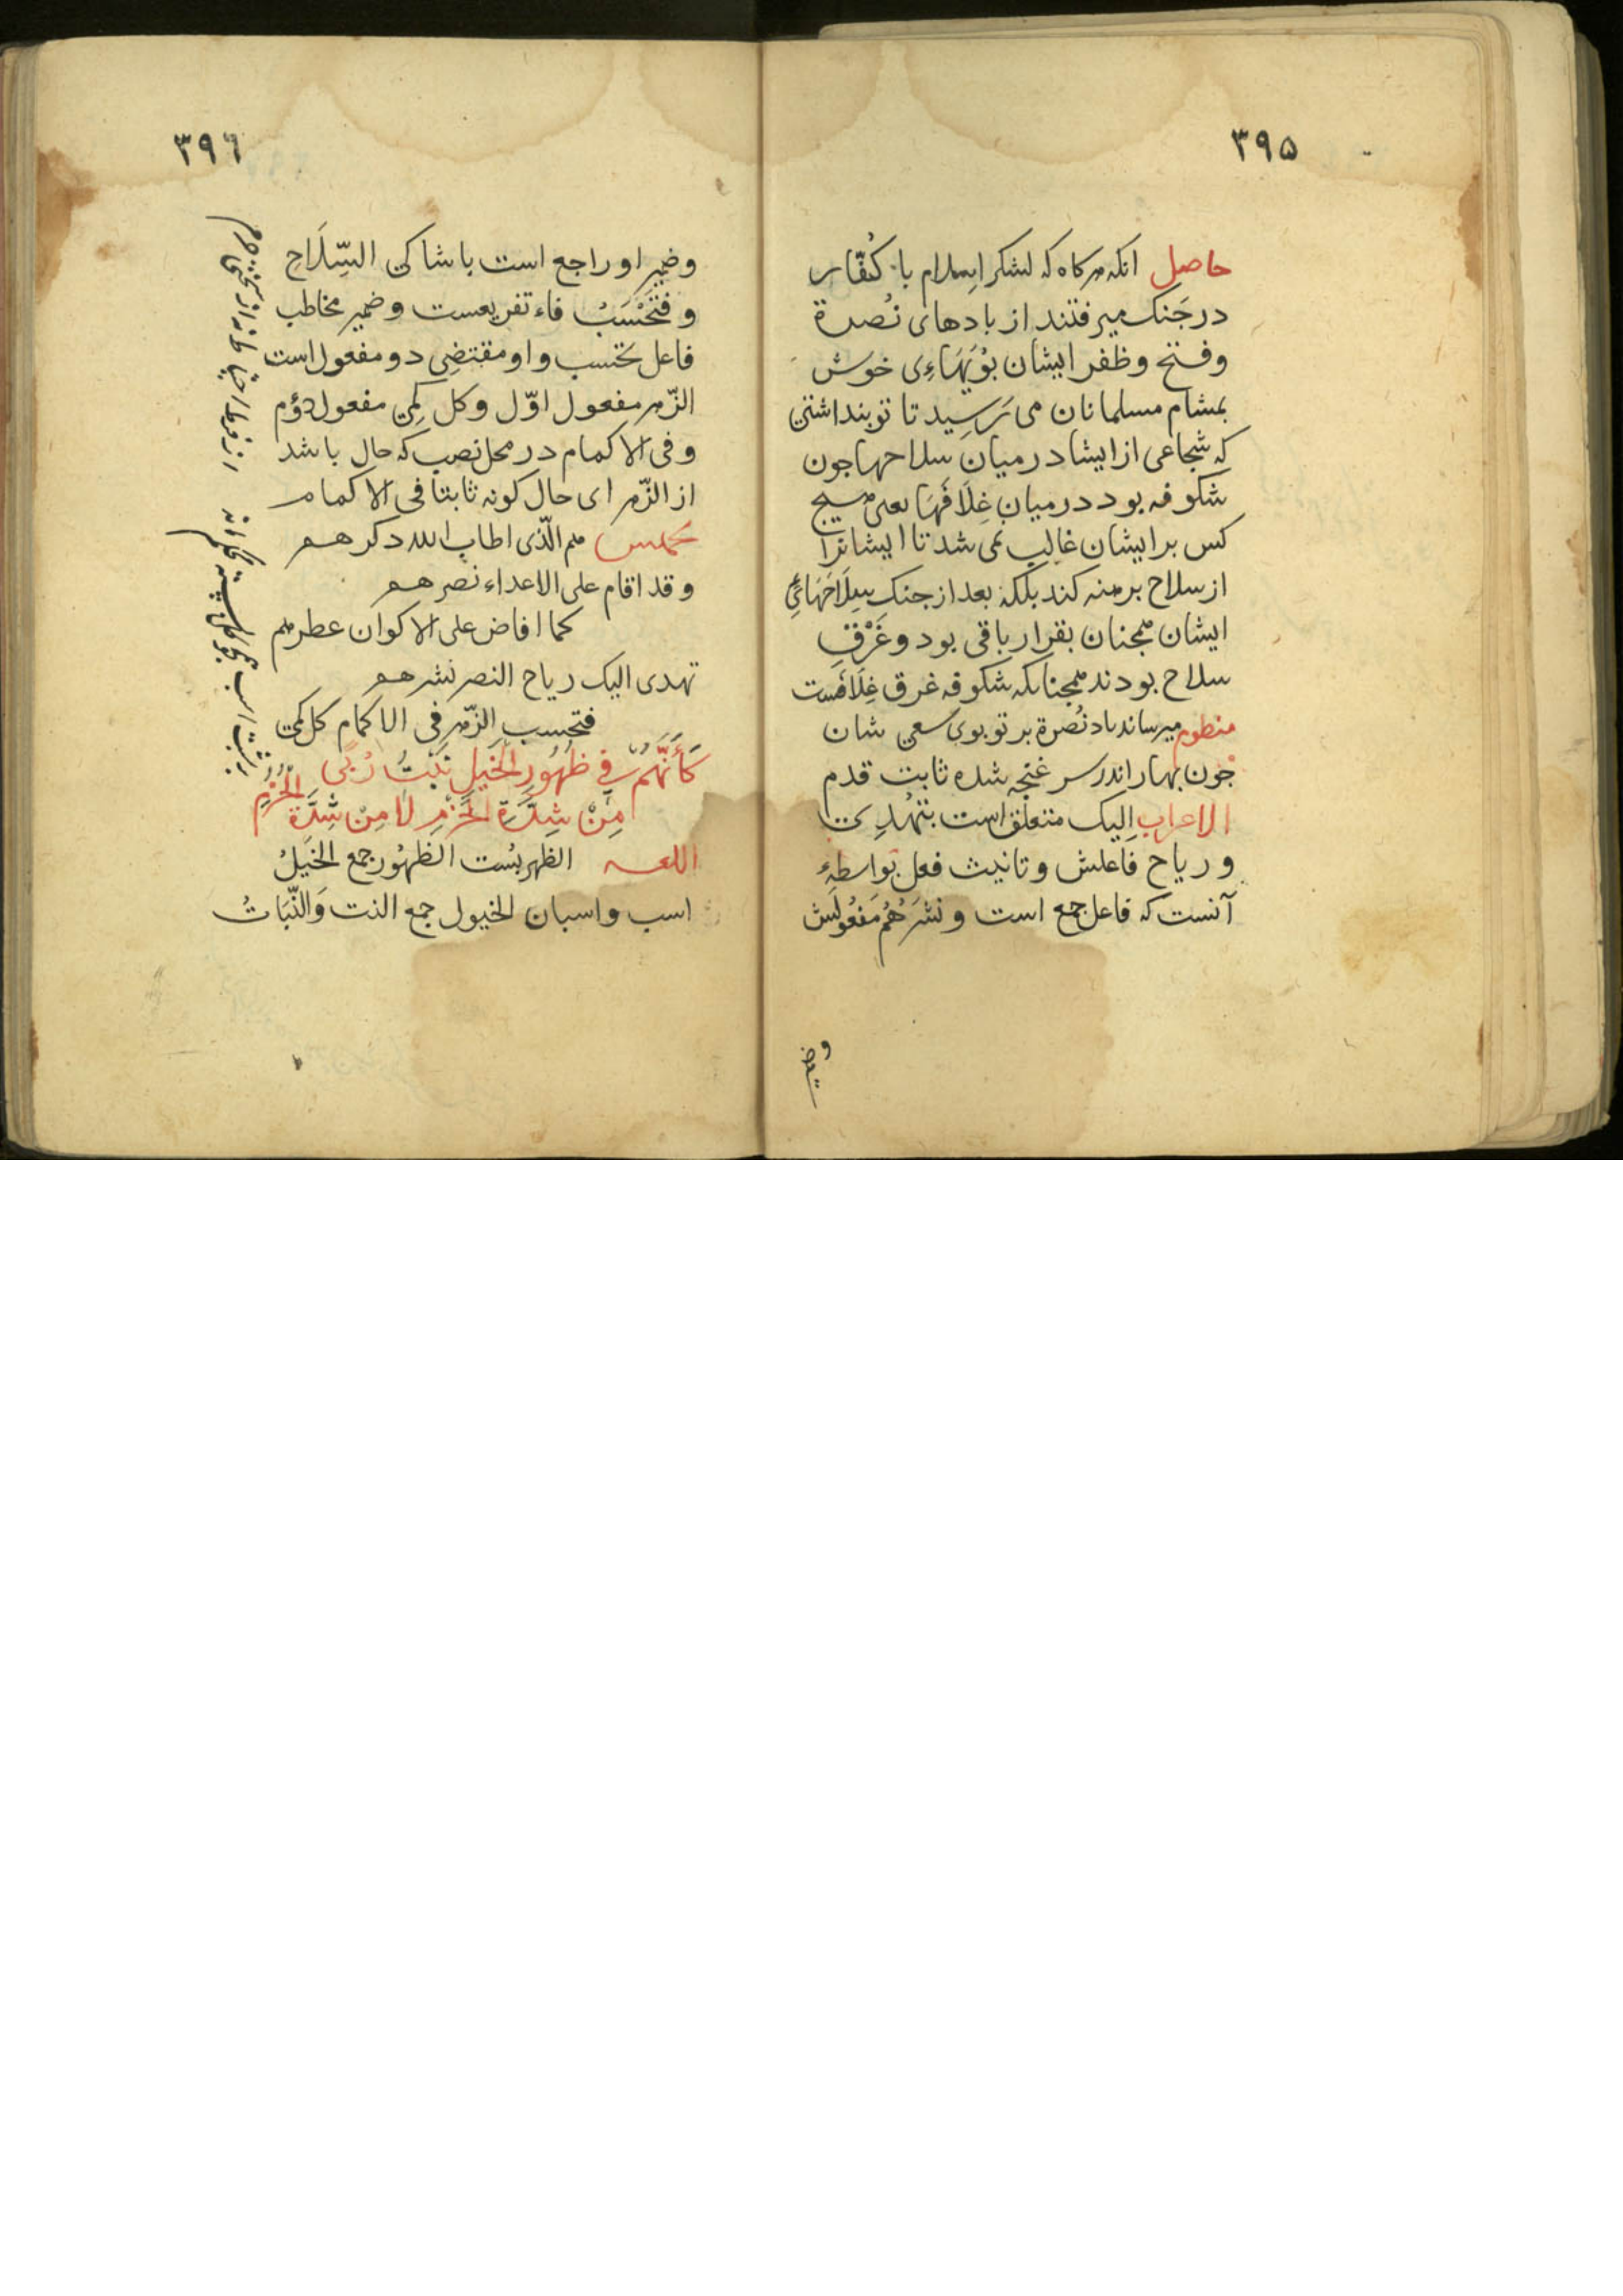 ۳۹۵
حاصل انکه هرکاه که لشکر اسلام با کفّار
در جَنک میرفتند از بادهای نُصرة
و فتح و ظفر ایشان بُویَهاءِی خوش
بمشام مسلمانان می رَسِید تا تو بنداشتی
که شجاعی از ایشا در میان سلاحها جون
شکوفه بود در میان غِلَافَهَا یعنی هیج
کس بر ایشان غالب نمی شد تا ایشانرا
از سلاح برهنه کند بلکه بعد از جنک سِلَاحَهَائیِ
ایشان همجنان بقرار باقی بود و غَرْقِ
سلاح بودند همجنانکه شکوفه غرق غِلَافَست
منظوم میرساند باد نُصرة بر تو بوی سعی شان
جون بهار اندر سر غنجه شده ثابت قدم
الاعراب اِلیک متعلق است بتُهْدِی
و ریاح فاعلش و تانیث فعل بواسطهٔ
آنست که فاعل جمع است و نَشْرَهُمْ مَفعُولَش
وضمیر
۳۹۶
وضمیر او راجع است باشاکی السِّلَاحِ
و فَتَحْسَبُ فاء تفریعست و ضمیر مخاطب
فاعل تحسب و او مقتضِی دو مفعول است
الزّهر مفعول اوّل و کل کَمِی مفعول دوُم
و فی الاکمام در محل نصب که حال باشد
از الزّهر ای حال کونه ثابتا فی الاکمام
مخمس هم الّذی اطاب الله ذکرهم
و قد اقام علی الاعداء نصرهم
کما افاض علی الاکوان عطرهم
تهدی الیک ریاح النصر نشرهم
فتحسب الزّهر فی الاکمام کل کمی
کَأَنَّهُمْ فِی ظُهُورِ الْخَیلِ نَبْتُ رُبًی
مِنْ شِدَّةِ الْحَزْمِ لَا مِنْ شِدَّةِ الْحُزُمِ
اللغه الظهر بُست الظهُور جمع الخَیلُ
اسب و اسبان الخیول جمع النبت وَالنَّبَاتُ